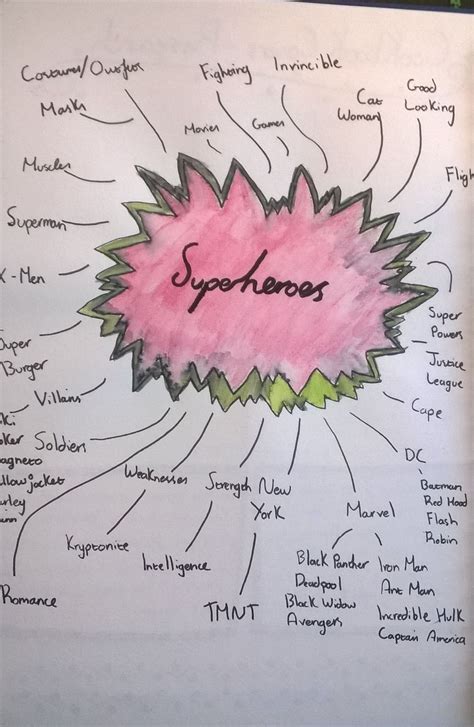 Costumes/Outfits
Masks
Muscles
Superman
X-Men
uper
Burger
Villans
ki
oker
agneto
llowjacket
rley
Soldiers
Romance
Movies
Fighting
Games
Invincible
Cat
Woman
Good
Looking
Fligh
Superheroes
Super
Powers
Justice
League
Cape
DC
Batman
Red Hood
Flash
Robin
Weaknesses
Kryptonite
Strength
Intelligence
New
York
TMNT
Marvel
Black Panther
Deadpool
Black Widow
Avengers
Iron Man
Ant Man
Incredible Hulk
Captain America